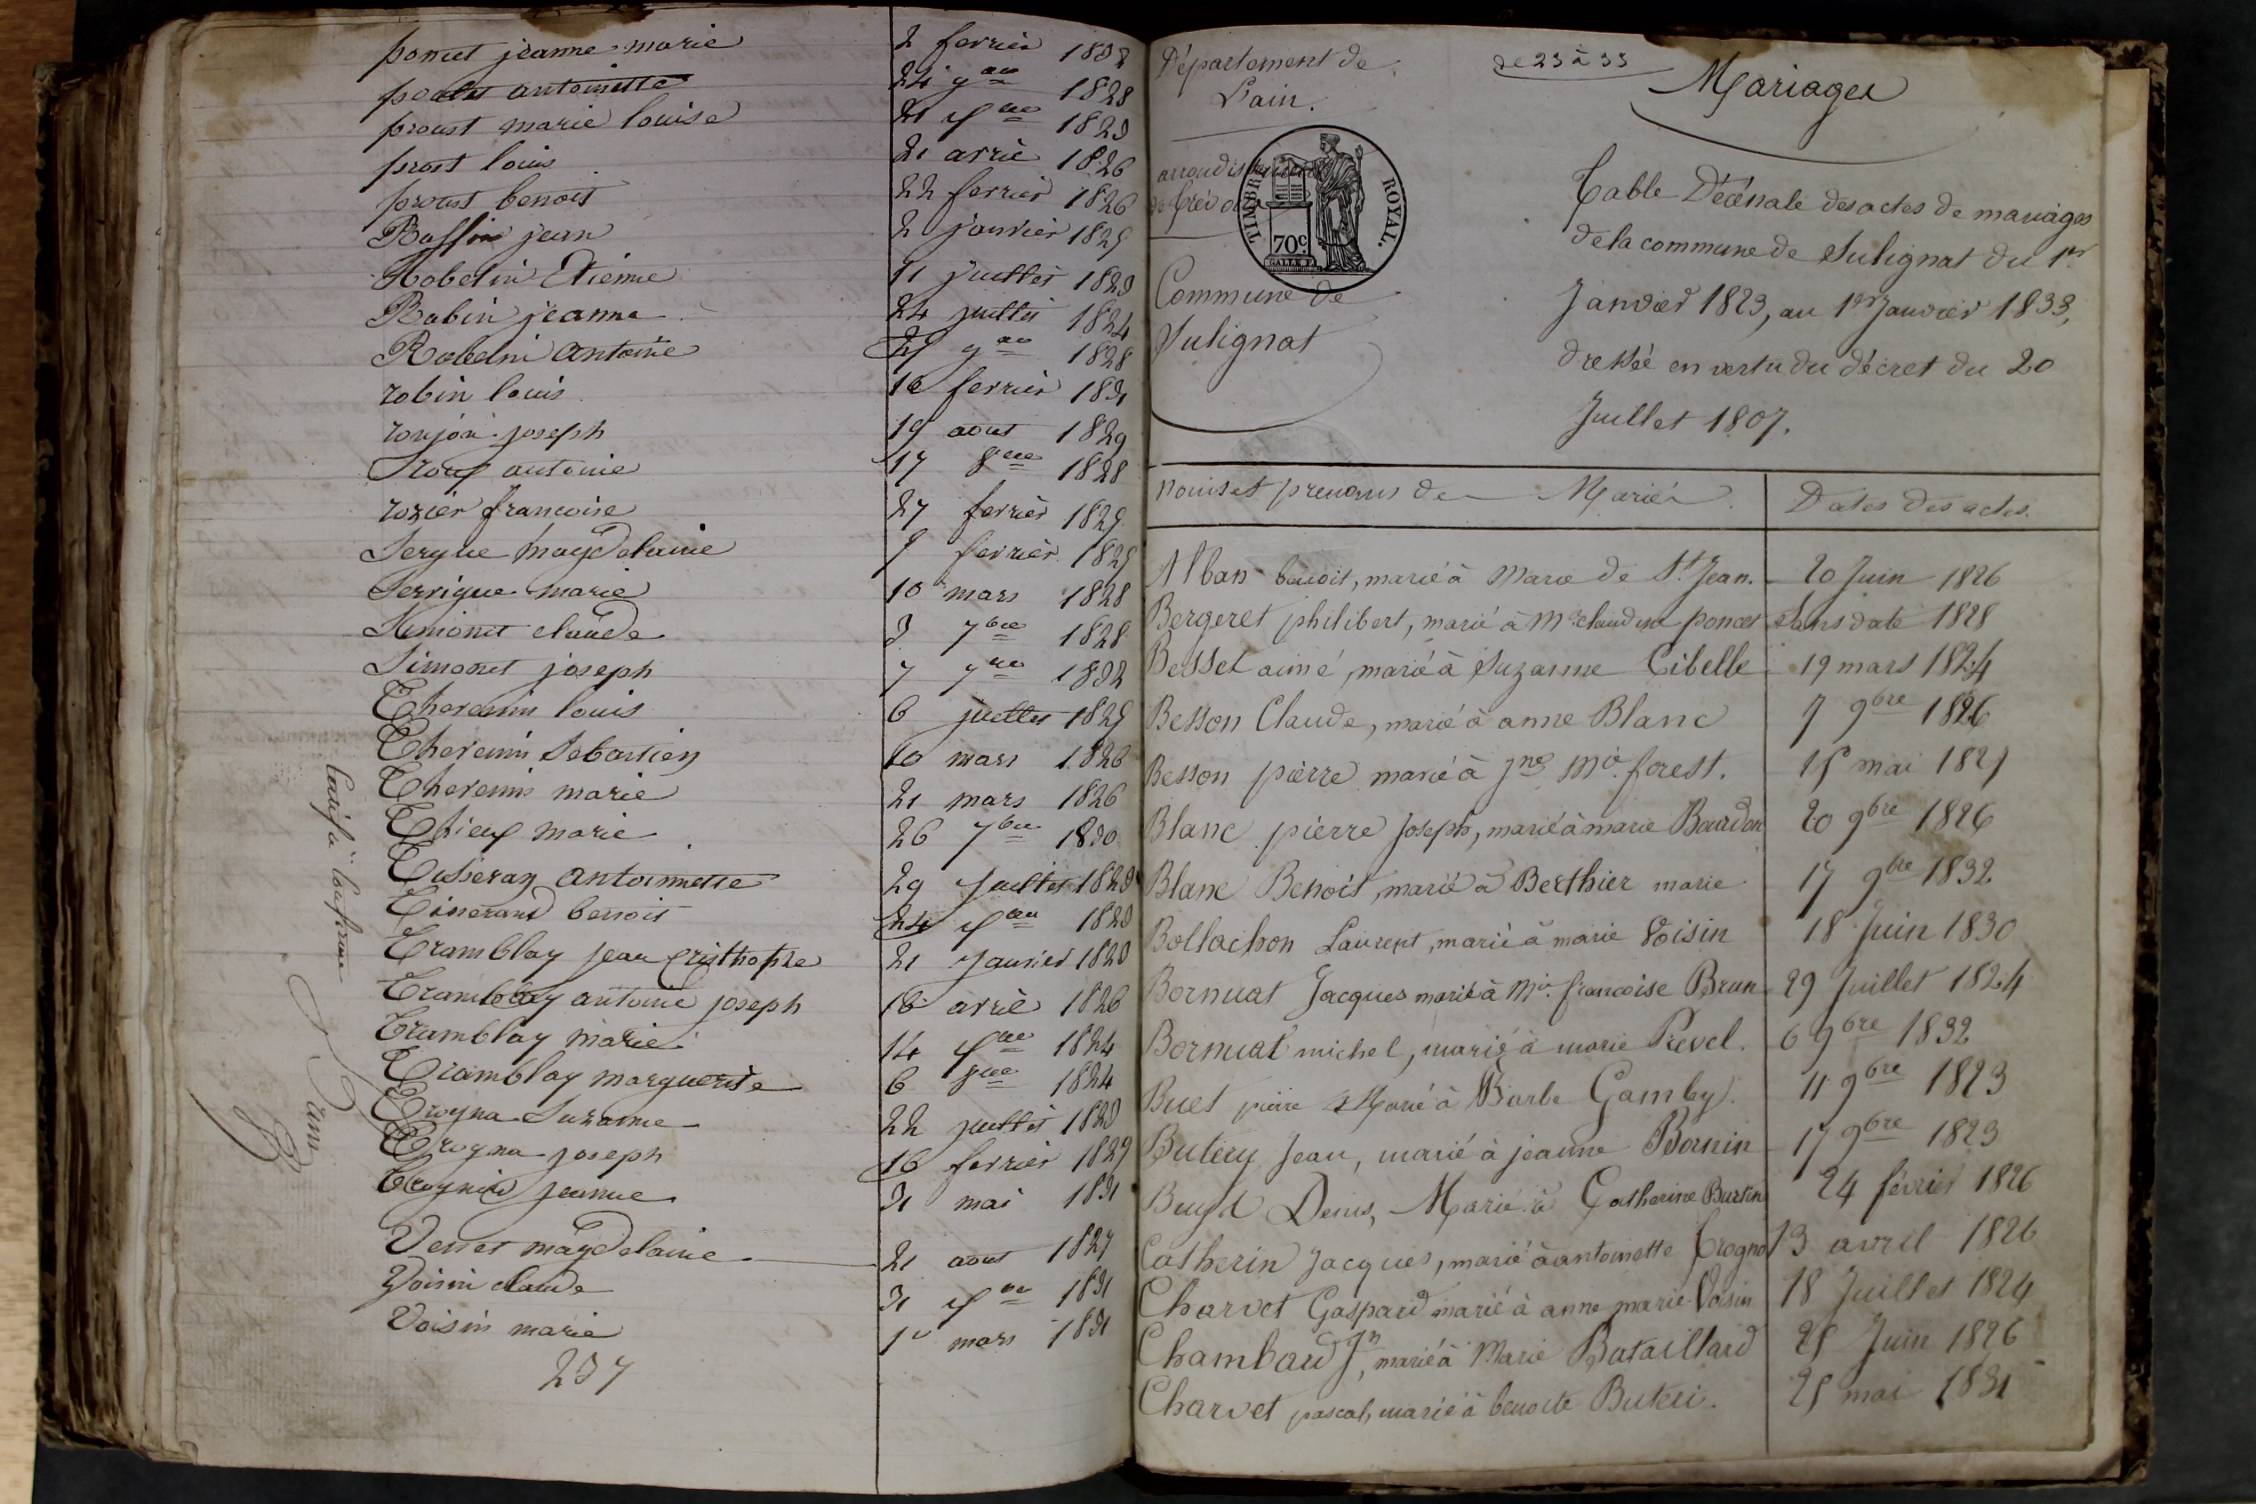 poncet jeanne marie 2 fevrier 1832
antoinette 24 9bre 1828
proust marie louise 1823
prost louis 21 avril 1826
proust benoit 22 fevrier 1826
Raffin jean 2 janvier 1825
Robelin Etienne 11 juillet 1823
Robin jeanne 24 juillet 1824
antoine 9bre 1828
robin louis 16 fevrier 1831
roujon joseph 19 aout 1829
antoine 17 8bre 1828
rozier francoise 27 fevrier 1825
Sergue magdelaine fevrier 1825
Serrigue marie 10 mars 1828
Simonet claude 3 7bre 1828
Simonet joseph 7 7bre 1832
Thevenin louis 6 juillet 1825
Thevenin Sebastien 10 mars 1826
Thevenin marie 21 mars 1826
marie 26 7bre 1830
Tisseran antoinette 29 juillet 1823
Tisserand benoit 24 1823
Tramblay jean Cristhophe 21 janvier 1823
Tramblay antoine joseph 16 avril 1826
Tramblay marie 14 1824
Tramblay marguerite 6 8bre 1824
Trogna Suzanne 22 juillet 1823
Trogna joseph 16 fevrier 1829
jeanne 31 mai 1831
magdelaine 21 aout 1827
Voisin claude 31 1831
Voisin marie 1er mars 1831
237
Département de
L'ain.
arrondissement
de Trévoux
TIMBRE ROYAL.
70c
Commune de
Sulignat
de 23 à 33
Mariages
Table Décénale des actes de mariages
de la commune de Sulignat du 1er
Janvier 1823, au 1er Janvier 1833,
dressée en vertu du décret du 20
Juillet 1807.
noms et prenoms de Mariés Dates des actes.
Alban benoit, marié à Marie de St Jean. 20 Juin 1826
Bergeret philibert, marié à Mie claudine poncet Sans date 1828
Besset aimé, marié à Suzanne Cibelle 19 mars 1824
Besson Claude, marié à anne Blanc 7 9bre 1826
Besson pierre marié à Jne Mie forest. 15 mai 1827
Blanc pierre Joseph, marié à marie Bourdon 20 9bre 1826
Blanc Benoit, marié à Berthier marie 17 9bre 1832
Bollachon Laurent, marié à marie Voisin 18 Juin 1830
Bornuat Jacques marié à Mie francoise Brun 29 Juillet 1824
Bornuat michel, marié à marie Prevel. 6 9bre 1832
Buet pierre Marié à Barbe Gamby. 11 9bre 1823
Butery Jean, marié à jeanne Bornin 17 9bre 1823
Denis, Marié à Catherine Burtin 24 février 1826
Catherin Jacques, marié à antoinette Trogna 13 avril 1826
Charvet Gaspard marié à anne marie Voisin 18 Juillet 1824
Chambaud Jn, marié à Marie Bataillard 25 Juin 1826
Charvet pascal, marié à benoite Buteri. 25 mai 1831